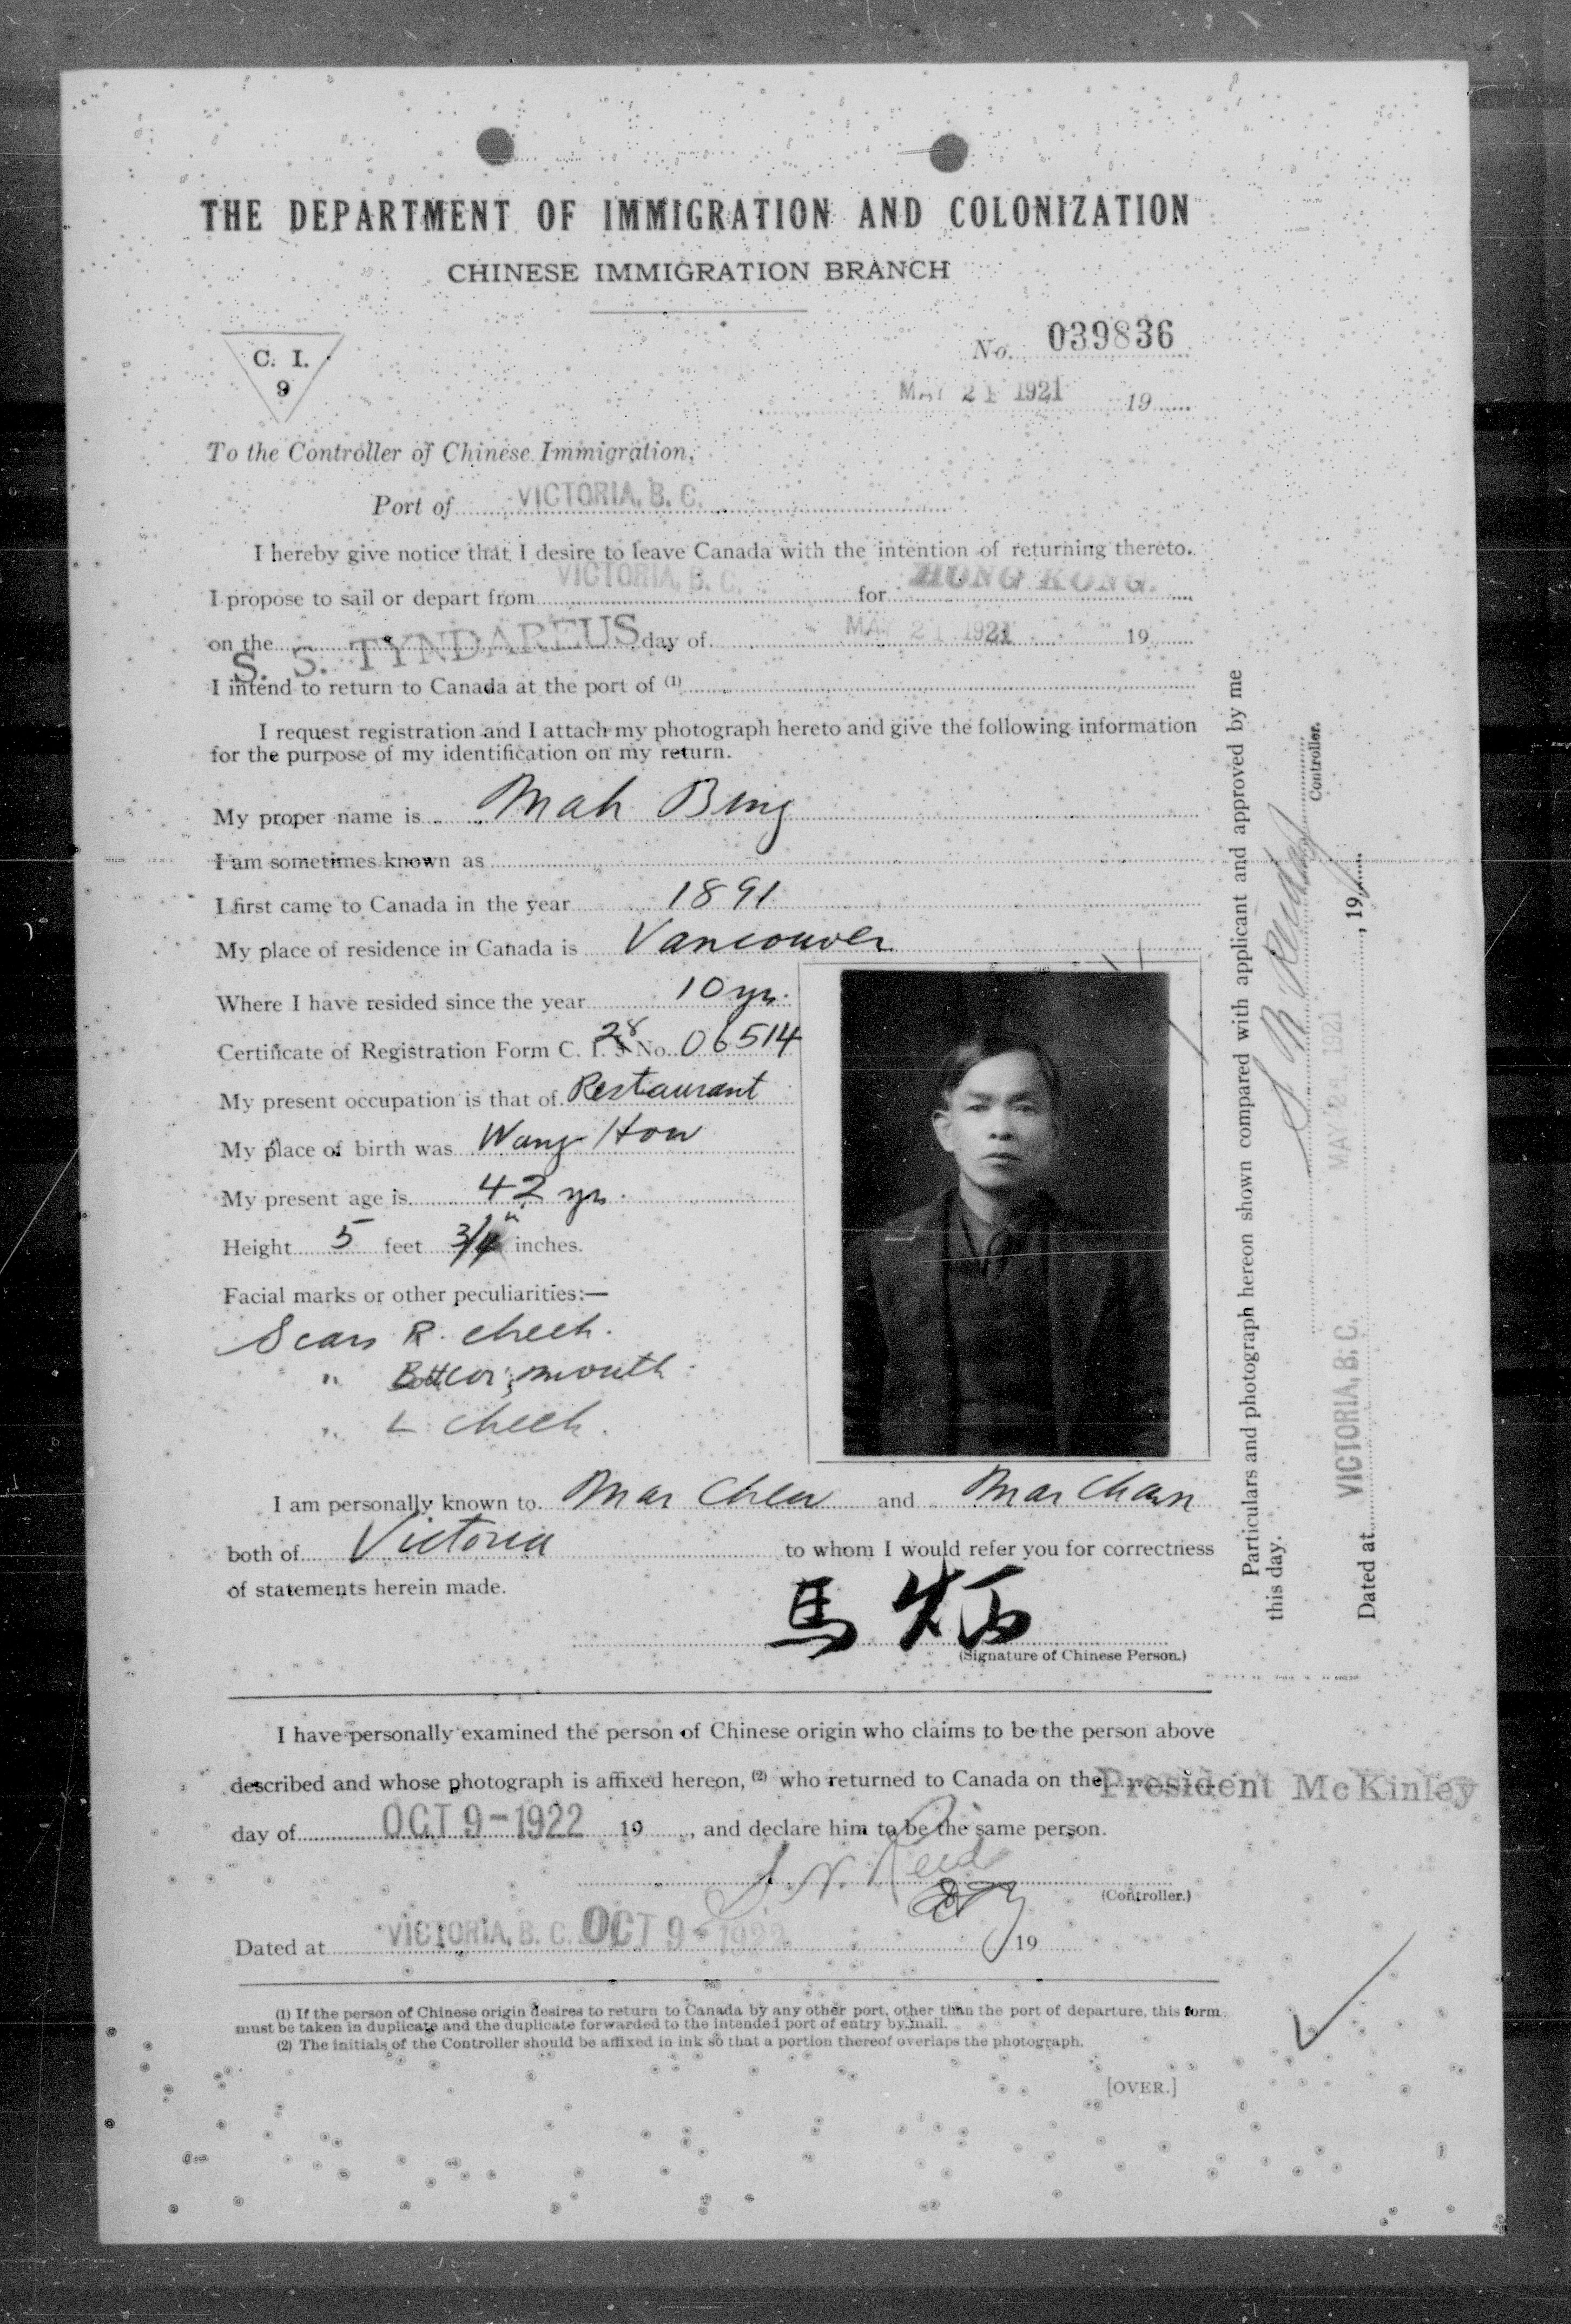 THE DEPARTMENT OF IMMIGRATION AND COLONIZATION
CHINESE IMMIGRATION BRANCH
C. I.
9
No. 039836
MAY 21 1921 19
To the Controller of Chinese Immigration,
Port of VICTORIA, B. C.
I hereby give notice that I desire to leave Canada with the intention of returning thereto.
I propose to sail or depart from VICTORIA, B. C. for HONG KONG.
on the S. S. TYNDAREUS day of MAY 21 1921 19
I intend to return to Canada at the port of (1)
I request registration and I attach my photograph hereto and give the following information
for the purpose of my identification on my return.
My proper name is Mah Bing
I am sometimes known as
I first came to Canada in the year 1891
My place of residence in Canada is Vancouver
Where I have resided since the year 10 yrs.
Certificate of Registration Form C. I. 28 No. 06514
My present occupation is that of Restaurant
My place of birth was Wang How
My present age is 42 yrs.
Height 5 feet 3/4" inches.
Facial marks or other peculiarities:—
Scars R. cheek.
" cor. mouth.
" L cheek.
I am personally known to Mar Chew and Mar Chawn
both of Victoria to whom I would refer you for correctness
of statements herein made.
馬炳
(Signature of Chinese Person.)
I have personally examined the person of Chinese origin who claims to be the person above
described and whose photograph is affixed hereon, (2) who returned to Canada on the President McKinley
day of OCT 9-1922 19, and declare him to be the same person.
S. N. Reid
(Controller.)
Dated at VICTORIA, B. C. OCT 9-1922 19
(1) If the person of Chinese origin desires to return to Canada by any other port, other than the port of departure, this form
must be taken in duplicate and the duplicate forwarded to the intended port of entry by mail.
(2) The initials of the Controller should be affixed in ink so that a portion thereof overlaps the photograph.
[OVER.]
Particulars and photograph hereon shown compared with applicant and approved by me
this day.
Controller.
Dated at VICTORIA, B. C. MAY 21 1921, 19